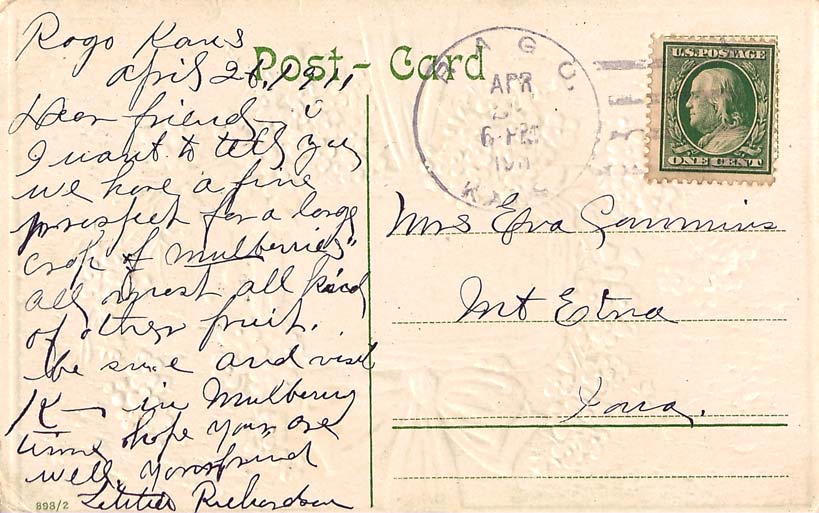 Rago Kans
April 26, 1911
Post - Card
RAGO.
APR
6-PM
1911
KANS
U.S. POSTAGE
ONE CENT
Dear friend -
I want to tell you
we have a fine
prospect for a large
crop of "Mulberries"
all most all kind
of other fruit.
be sure and visit
K— in Mulberry
time, hope your are
well, your friend
Richardson
Mrs Eva Cummins
Mt Etna
Iowa.
898/2